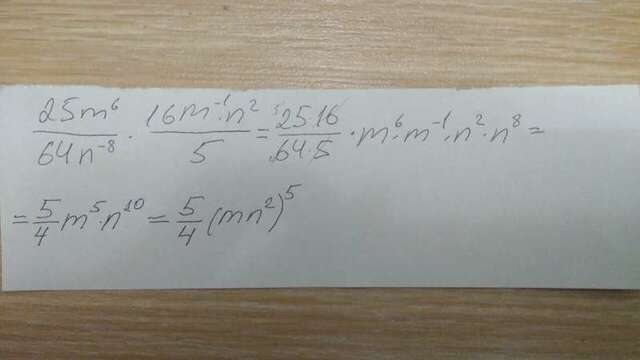 25m⁶/64n⁻⁸ · 16m⁻¹·n²/5 = 25·16/64·5 · m⁶·m⁻¹·n²·n⁸ =
= 5/4 m⁵·n¹⁰ = 5/4 (mn²)⁵